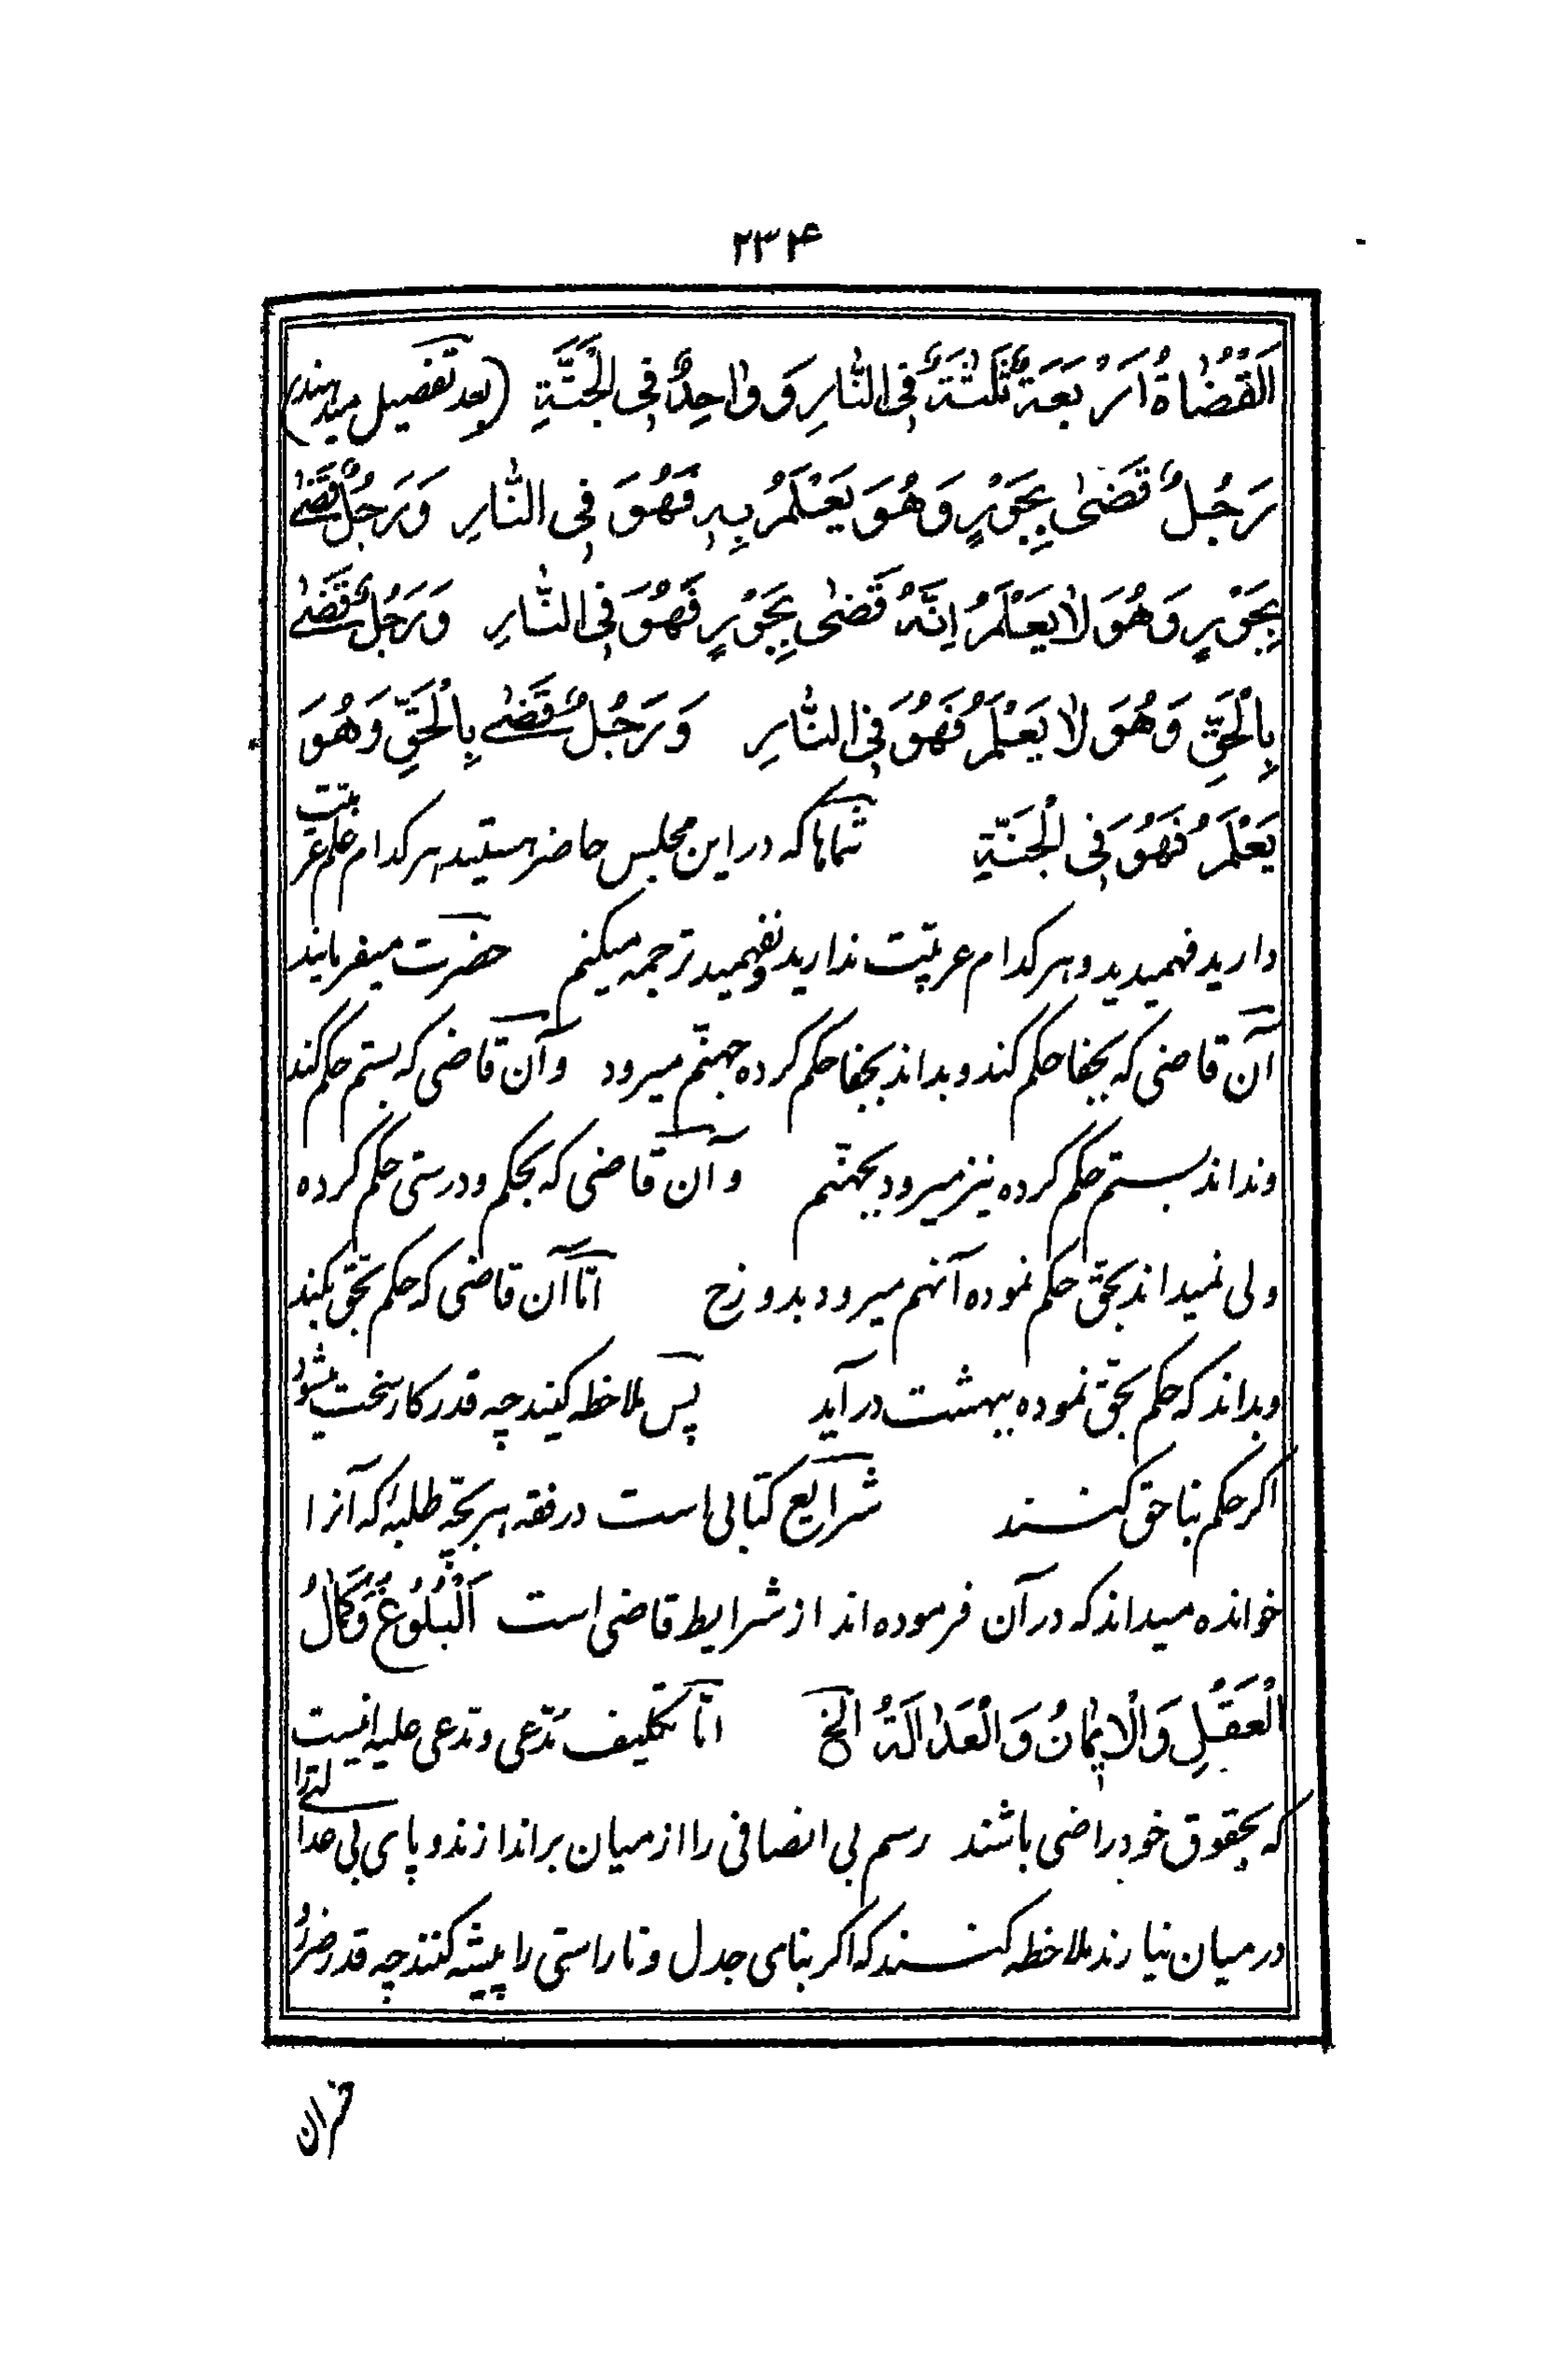 ۲۳۴
اَلْقُضٰاةُ اَرْبَعَةٌ ثَلٰثَةٌ فِی النّٰارِ وَ وٰاحِدٌ فِی الْجَنَّةِ (بعد تفصیل میدهند)
رَجُلٌ قَضٰی بِجَوْرٍ وَهُوَ یَعْلَمُ بِهِ فَهُوَ فِی النّٰارِ وَرَجُلٌ قَضٰی
بِجَوْرٍ وَهُوَ لٰا یَعْلَمُ اِنَّهُ قَضٰی بِجَوْرٍ فَهُوَ فِی النّٰارِ وَرَجُلٌ قَضٰی
بِالْحَقِّ وَهُوَ لٰا یَعْلَمُ فَهُوَ فِی النّٰارِ وَرَجُلٌ قَضٰی بِالْحَقِّ وَهُوَ
یَعْلَمُ فَهُوَ فِی الْجَنَّةِ شماها که در این مجلس حاضر هستید هر کدام علم عربیّت
دارید فهمیدید و هر کدام عربیّت ندارید و نفهمید ترجمه میکنم حضرت میفرمایند
آن قاضی که بجفا حکم کند و بداند بجفا حکم کرده جهنّم میرود وآن قاضی که بستم حکم کند
ونداند بستم حکم کرده نیز میرود بجهنّم و آن قاضی که بحکم و درستی حکم کرده
ولی نمیداند بحقّ حکم نموده آنهم میرود بدوزخ امّا آن قاضی که حکم بحقّ بکند
وبداند که حکم بحقّ نموده ببهشت در آید پس ملاحظه کنید چه قدر کار سخت میشود
اکر حکم بناحق کنند شرایع کتابی است در فقه هر بچّه طلبهٔ که آنرا
خوانده میداند که در آن فرموده اند از شرایط قاضی است اَلْبُلُوغُ وَ کَمٰالُ
الْعَقْلِ وَ الْاٖیمٰانُ وَ الْعَدٰالَةُ الخ امّا تکلیف مدّعی و مدّعی علیه اینست
که بحقوق خود راضی باشند رسم بی انصافی را از میان براندازند و پای بی خدا
در میان نیارند ملاحظه کنند که اکر بنای جدل و ناراستی را پیشه کنند چه قدر ضرر